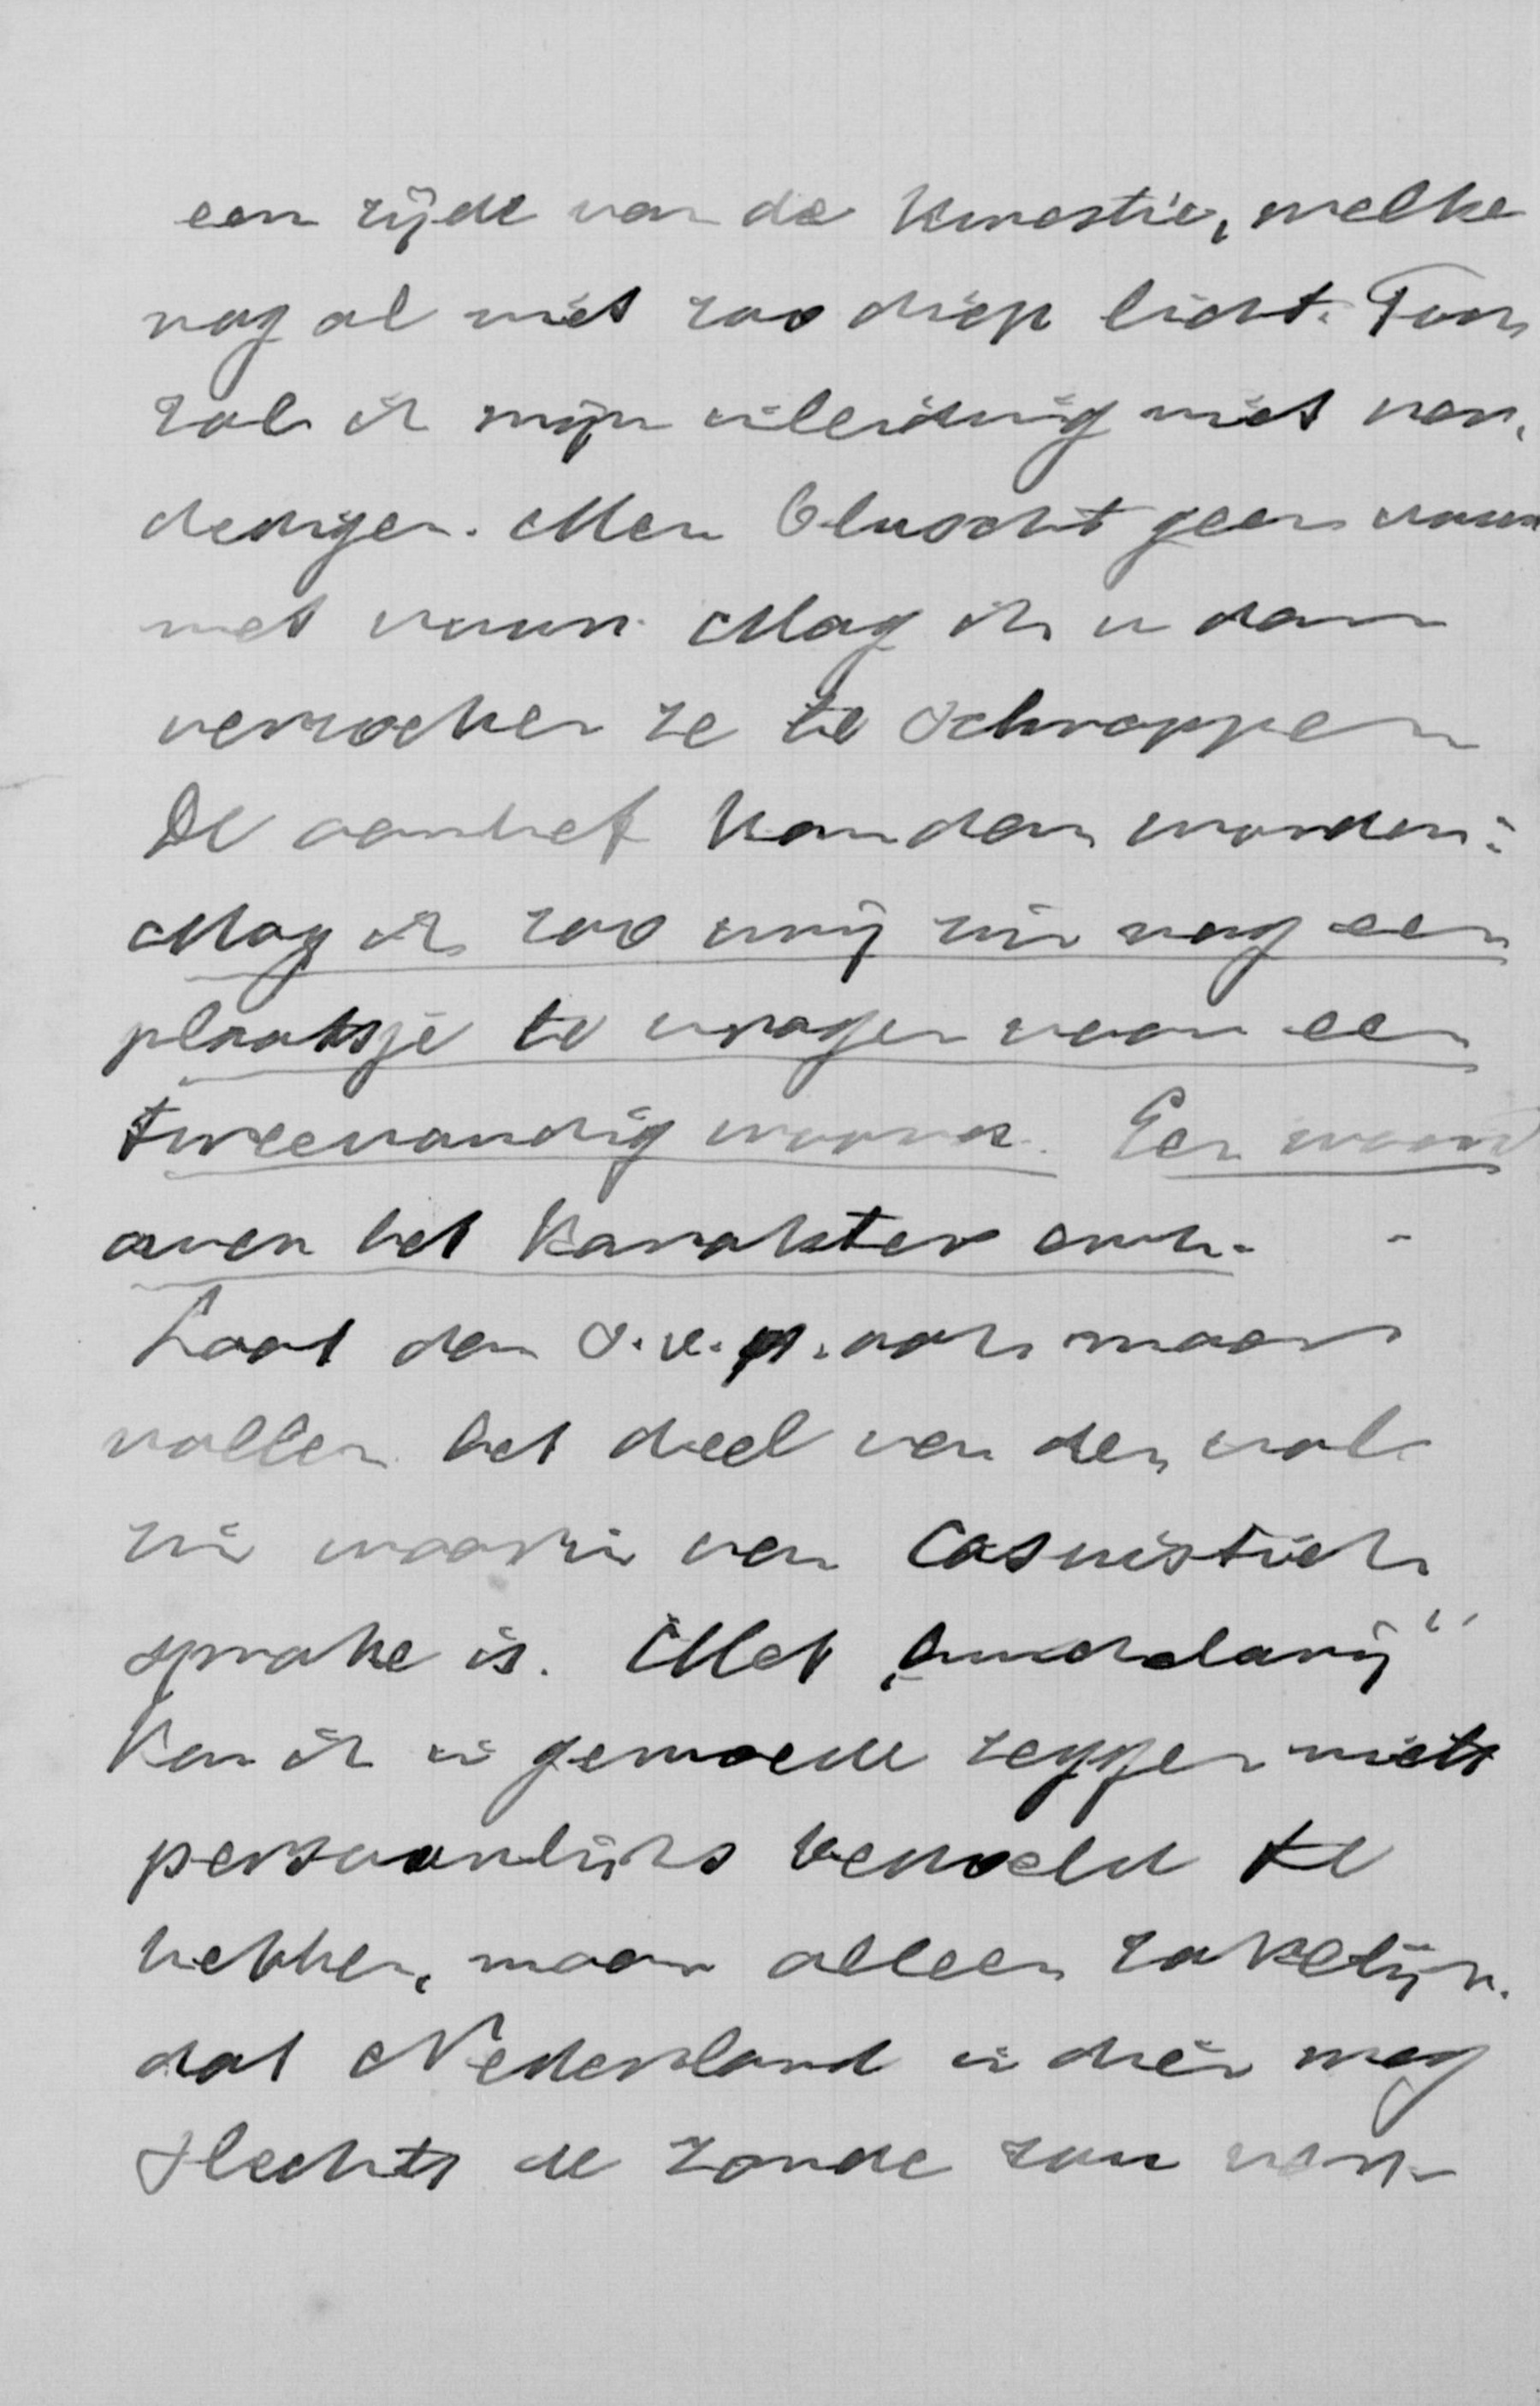 een zijde van de kwestie, welke
nog al niet zoo diep licht. Toch
zal ik mijn inleiding niet ver-
dedigen. Men bluscht geen vuur
met vuur. Mag ik u dan
verzoeken ze te schrappen
De aanhef kan dan worden:
Mag ik zoo vrij zijn nog een
plaatsje te vragen voor een
tweevoudig woord. Een woord
over het karakter enz. -
Laat dan s.v.p. ook maar
vallen het deel van den vol
zin waarin van casuistiek
sprake is. Met "
kan ik in gemoede zeggen niets
persoonlijks bedoeld te
hebben, maar alleen zakelijk.
dat Nederland in dien weg
slechts de zonde zou ver-